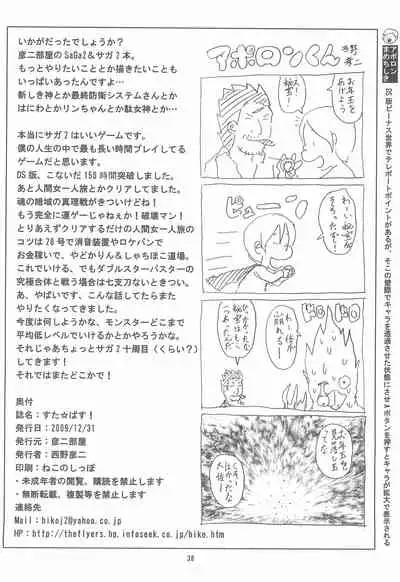 いかがだったでしょうか？
彦二部屋のSaGa2＆サガ2本。
もっとやりたいこととか描きたいことも
いっぱいあったんですよ…
新しき神とか最終防衛システムさんとか
はにわとかリンちゃんとか駄女神とか…
本当にサガ2はいいゲームです。
僕の人生の中で最も長い時間プレイしてる
ゲームだと思います。
DS版、こないだ150時間突破しました。
あと人間女一人旅とかクリアしてました。
魂の暗域の真理戦がきついけど
もう完全に運ゲーじゃねぇか！破壊マン！
とりあえずクリアするだけの人間女一人旅の
コツは28号で消音装置やロケパンで
お金稼いで、やどかりん＆しゃちほこ道場。
これでいける、でもダブルスターバスターの
究極合体と戦う場合は七支刀ないときつい。
あ、やばいです、こんな話してたらまた
やりたくなってきました。
今度は何しようかな、モンスターどこまで
平均低レベルでいけるかとかやろうかな。
それじゃあちょっとサガ2十周目（くらい？）
してきます！
それではまたどこかで！
奥付
誌名：すた☆ばす！
発行日：2009/12/31
発行元：彦二部屋
発行者：西野彦二
印刷：ねこのしっぽ
・未成年者の閲覧、購読を禁止します
・無断転載、複製等を禁止します
連絡先
Mail：hikoj2@yahoo.co.jp
HP：http://theflyers.hp.infoseek.co.jp/hiko.htm
アポロンくん
西野彦二
お年玉を
あげよう
わーい秘宝だ
ドドドド
わー体が
崩れるー
お年玉の
見せ場いし
くそー
はかったな
大佐ー！
アポロン
まめちしき
DS版ビーナス世界でテレポートポイントがあるが、そこの壁際でキャラを通過させた状態にさせAボタンを押すとキャラが拡大で表示される
38